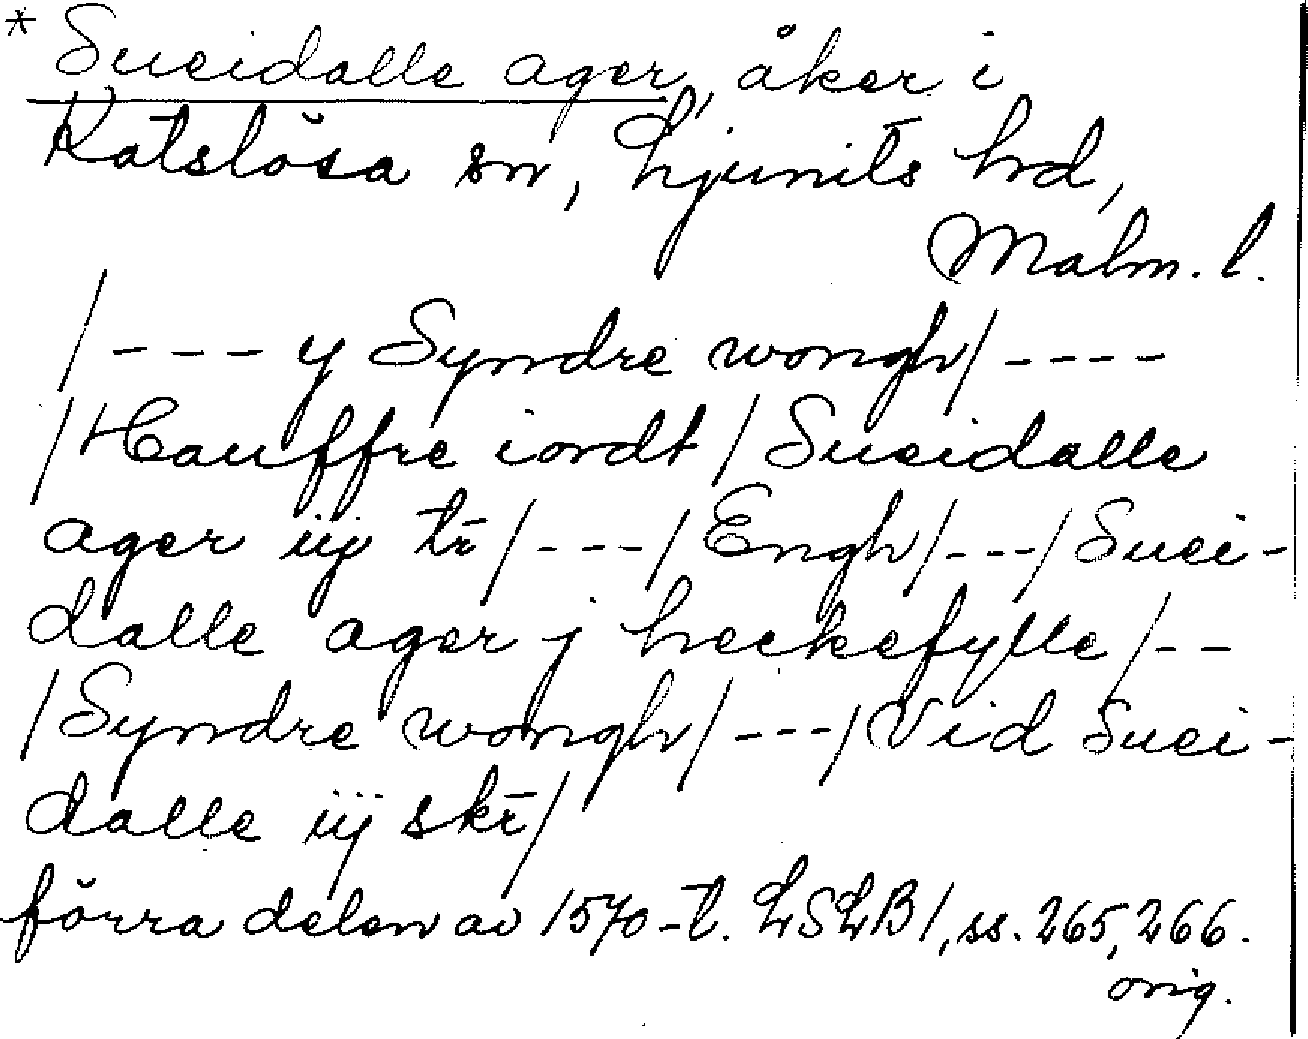 * Sueidalle ager, åker i
Katslösa sn, Ljunits hd,
Malm. l.
/ - - - y Syndre wongh/ - - - -
/Hauffre iordt / Sueidalle
ager iij tr̄ / - - - / Engh / - - - / Suei-
dalle ager j heckefylle / - -
/ Syndre wongh / - - - / Vid Suei-
dalle iij skr̄ /
förra delen av 1570-t. LSLB1, ss. 265, 266.
orig.